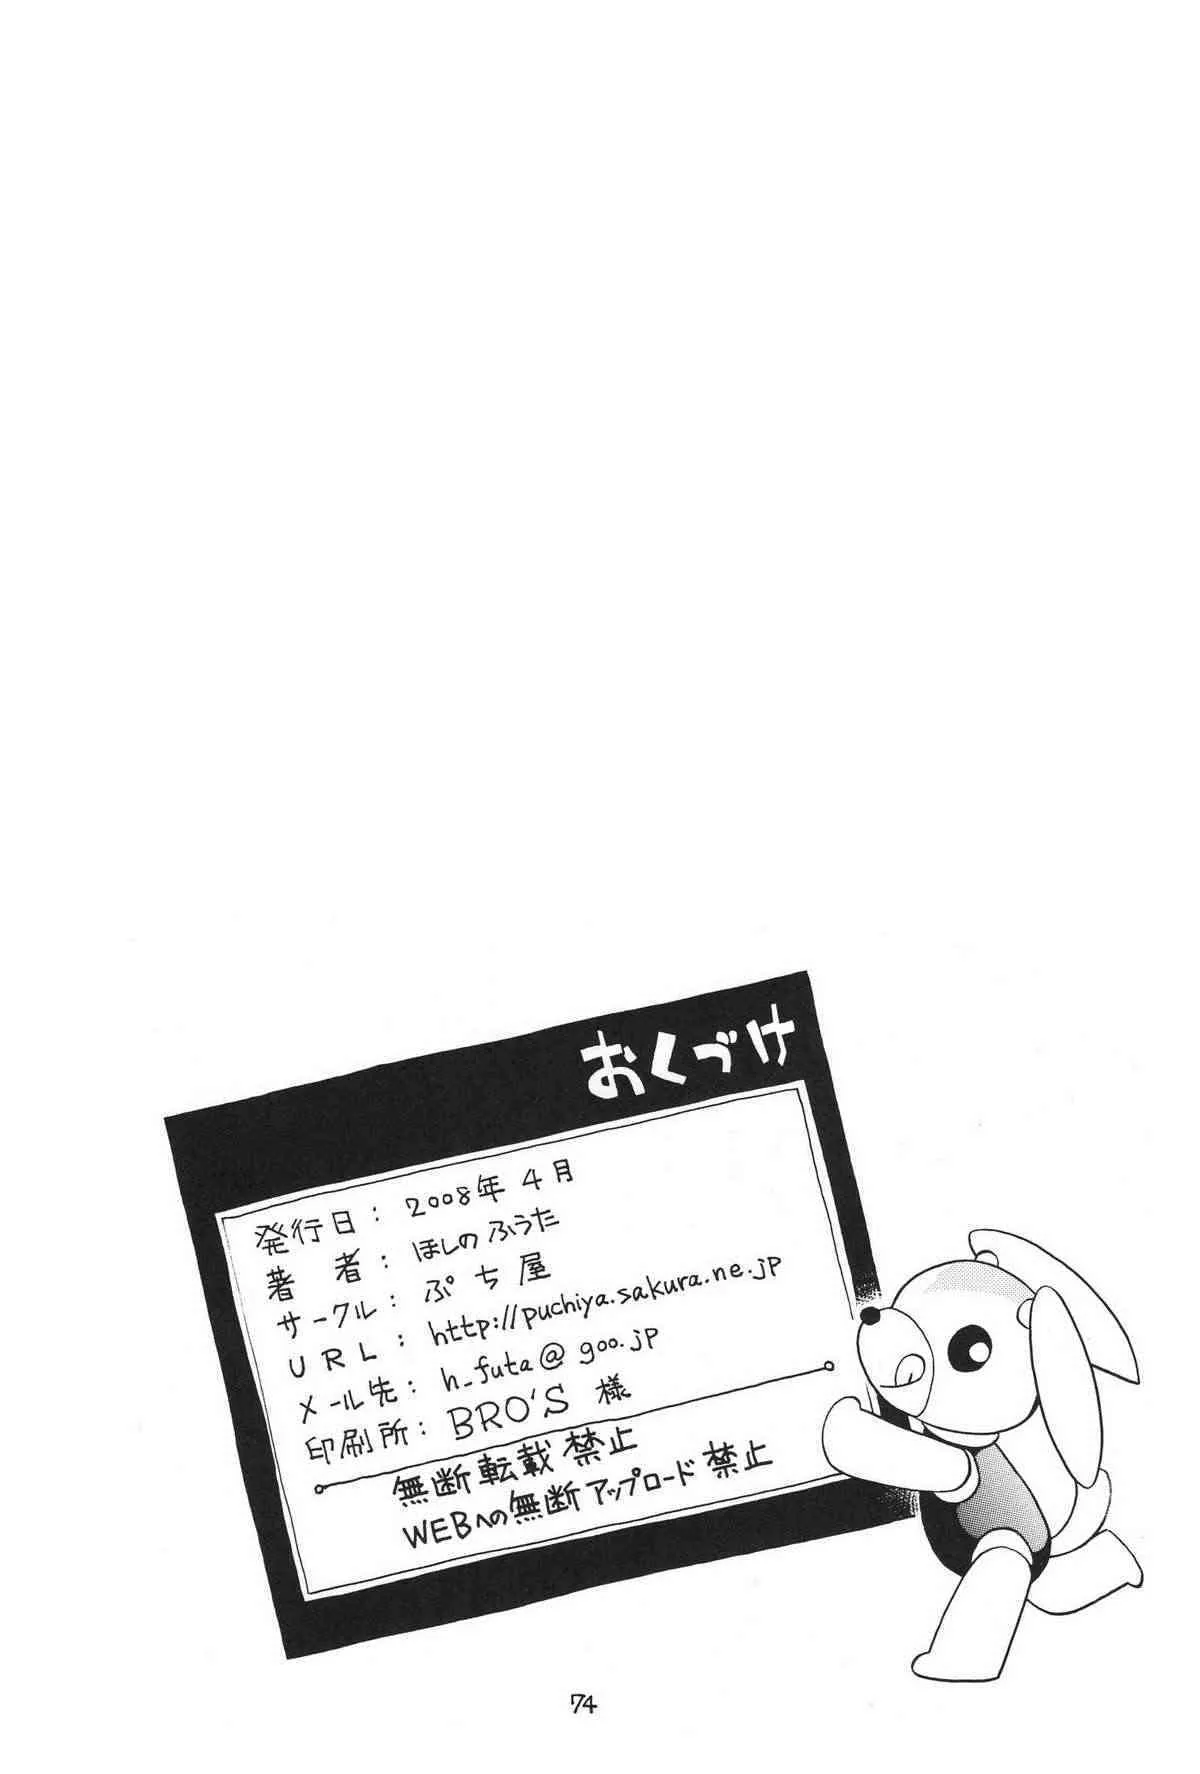 おくづけ
発行日：2008年4月
著者：ほしのふうた
サークル：ぷち屋
URL：http://puchiya.sakura.ne.jp
メール先：h_futa@goo.jp
印刷所：BRO'S 様
無断転載禁止
WEBへの無断アップロード禁止
74